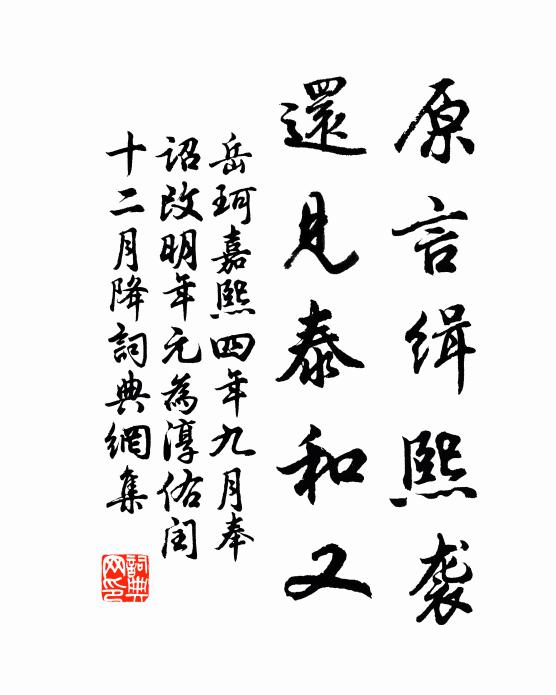 原言缉熙袭
還見泰和又
岳珂嘉熙四年九月奉
詔改明年元為淳佑闰
十二月降詞典網集
詞典网印